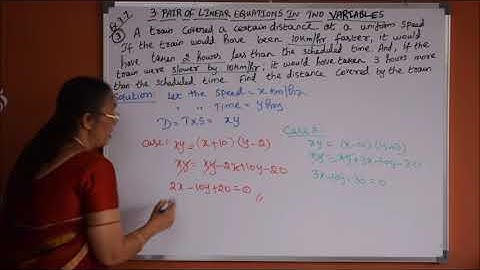 3 PAIR OF LINEAR EQUATIONS IN TWO VARIABLES
A train covered a certain distance at a uniform speed
If the train would have been 10km/hr faster, it would
have taken 2 hours less than the scheduled time. And, if the
train were slower by 10km/hr, it would have taken 3 hours more
than the scheduled time. Find the distance covered by the train
Solution: Let the speed = x km/hr
" " Time = y hrs
D = T x S = xy
Case 1: xy = (x+10) (y-2)
xy = xy - 2x + 10y - 20
2x - 10y + 20 = 0
Case 2:
xy = (x-10) (y+3)
xy = xy + 3x - 10y - 30
3x - 10y - 30 = 0